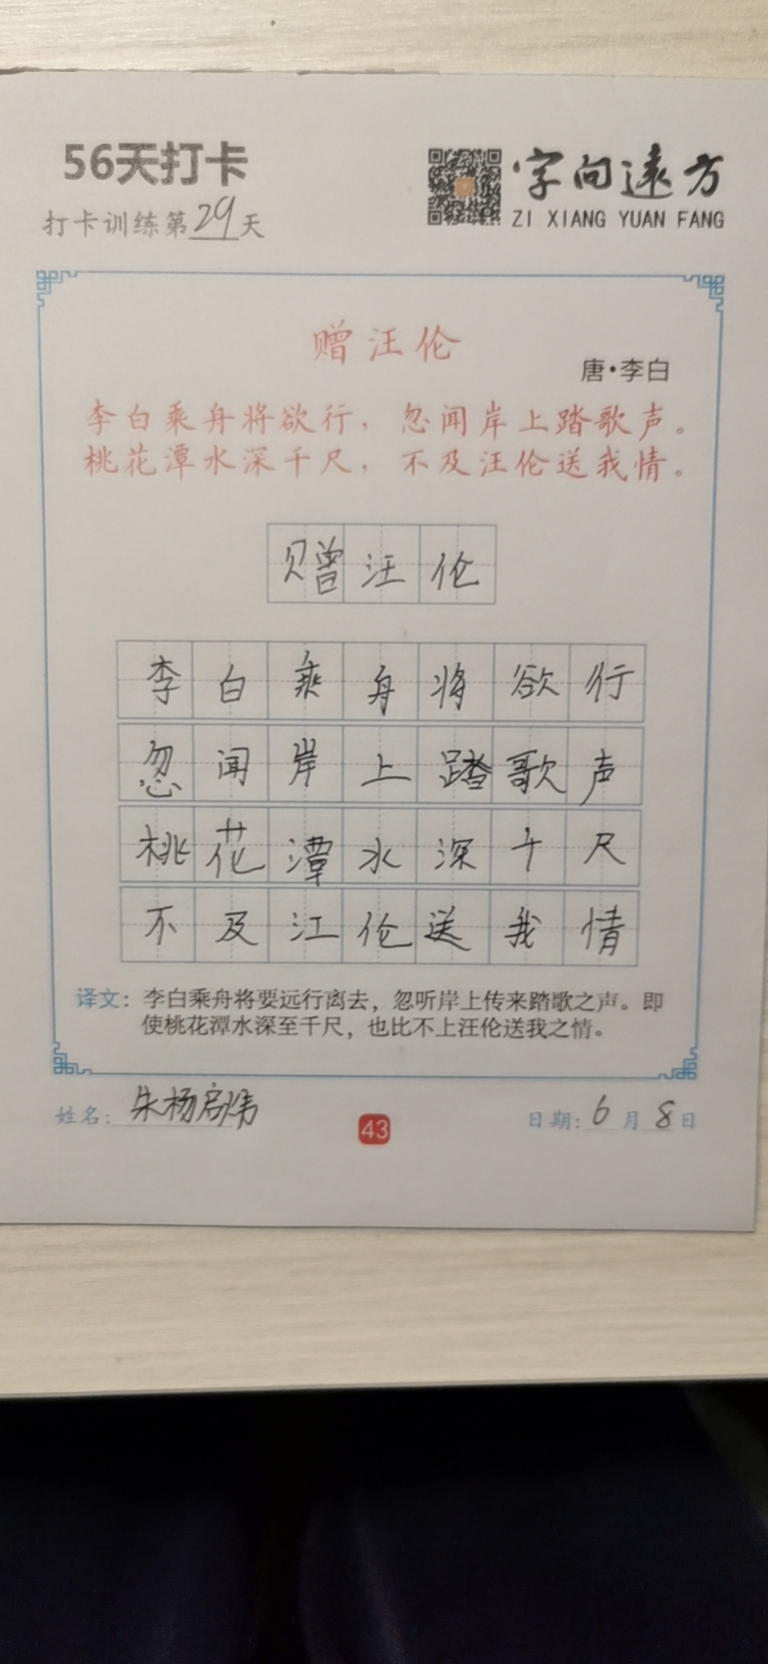 56天打卡
字向远方
打卡训练第29天
ZI XIANG YUAN FANG
赠汪伦
唐·李白
李白乘舟将欲行，忽闻岸上踏歌声。
桃花潭水深千尺，不及汪伦送我情。
赠汪伦
李白乘舟将欲行
忽闻岸上踏歌声
桃花潭水深千尺
不及江伦送我情
译文：李白乘舟将要远行离去，忽听岸上传来踏歌之声。即
使桃花潭水深至千尺，也比不上汪伦送我之情。
姓名：朱杨启炜
43
日期：6月8日